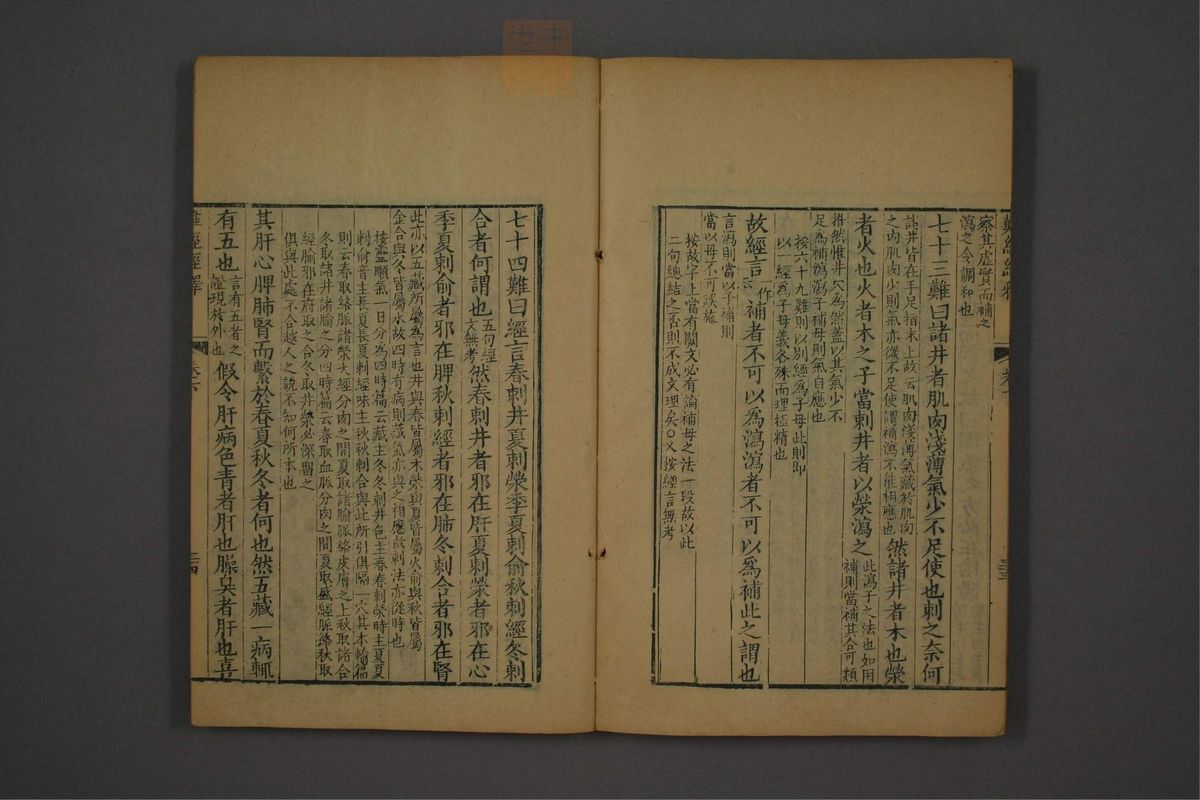 難經經釋
察其虛實而補之
瀉之令調和也
七十三難曰諸井者肌肉淺薄氣少不足使也刺之奈何
諸井皆在手足指末上故云肌肉淺薄氣藏於肌肉
之内肌肉少則氣亦微不足使謂補瀉不能相應也
然諸井者木也滎
者火也火者木之子當刺井者以滎瀉之
此瀉子之法也如用
補則當補其合可類
推然惟井穴為然蓋以其氣少不
足為補瀉瀉子補母則氣自應也
按六十九難則以別經為子母此則即
以一經為子母義各殊而理極精也
故經言
一作
云
補者不可以為瀉瀉者不可以為補此之謂也
言瀉則當以子補則
當以母不可誤施
按故字上當有闕文必有論補母之法一段故以此
二句總結之否則不成文理矣〇又按經言無考
七十四難曰經言春刺井夏刺滎季夏刺俞秋刺經冬刺
合者何謂也
五句經
文無考
然春刺井者邪在肝夏刺滎者邪在心
季夏刺俞者邪在脾秋刺經者邪在肺冬刺合者邪在腎
此亦以五藏所屬為言也井與春皆屬木滎與夏皆屬火俞與秋皆屬
金合與冬皆屬水故四時有病則藏氣亦與之相應故刺法亦從時也
按靈順氣一日分為四時篇云藏主冬冬刺井色主春春刺滎時主夏夏
刺俞音主長夏長夏刺經味主秋秋刺合與此所引俱隔一穴其本輸篇
則云春取絡脈諸滎大經分肉之間夏取諸腧脈絡皮膚之上秋取諸合
冬取諸井諸腧之分四時篇云春取血脈分肉之間夏取盛經脈絡秋取
經腧邪在府取之合冬取井滎必深留之
俱與此處不合越人之說不知何所本也
其肝心脾肺腎而繫於春夏秋冬者何也然五藏一病輒
有五也
言有五者之
證現於外也
假令肝病色青者肝也臊臭者肝也喜
難經經釋
卷下
三四